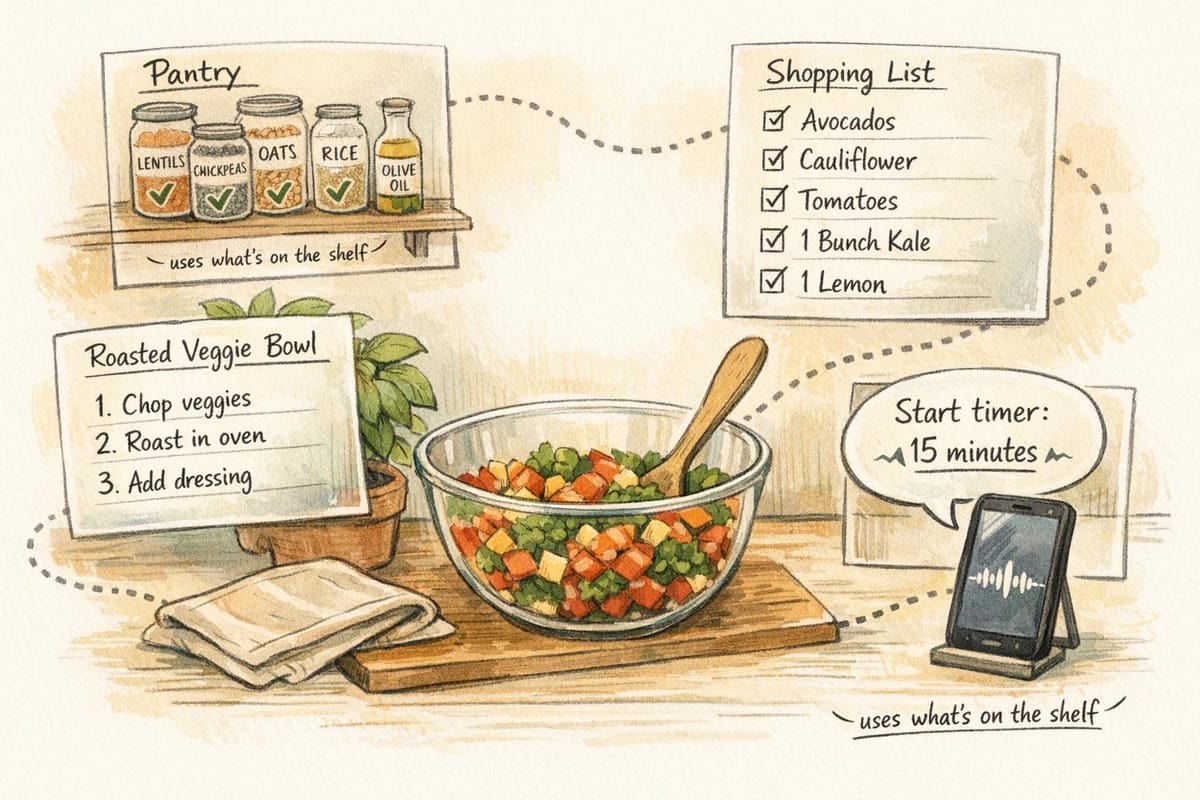 Pantry
LENTILS
CHICKPEAS
OATS
RICE
OLIVE
OIL
uses what's on the shelf
Shopping List
Avocados
Cauliflower
Tomatoes
1 Bunch Kale
1 Lemon
Roasted Veggie Bowl
1. Chop veggies
2. Roast in oven
3. Add dressing
Start timer:
15 minutes
uses what's on the shelf